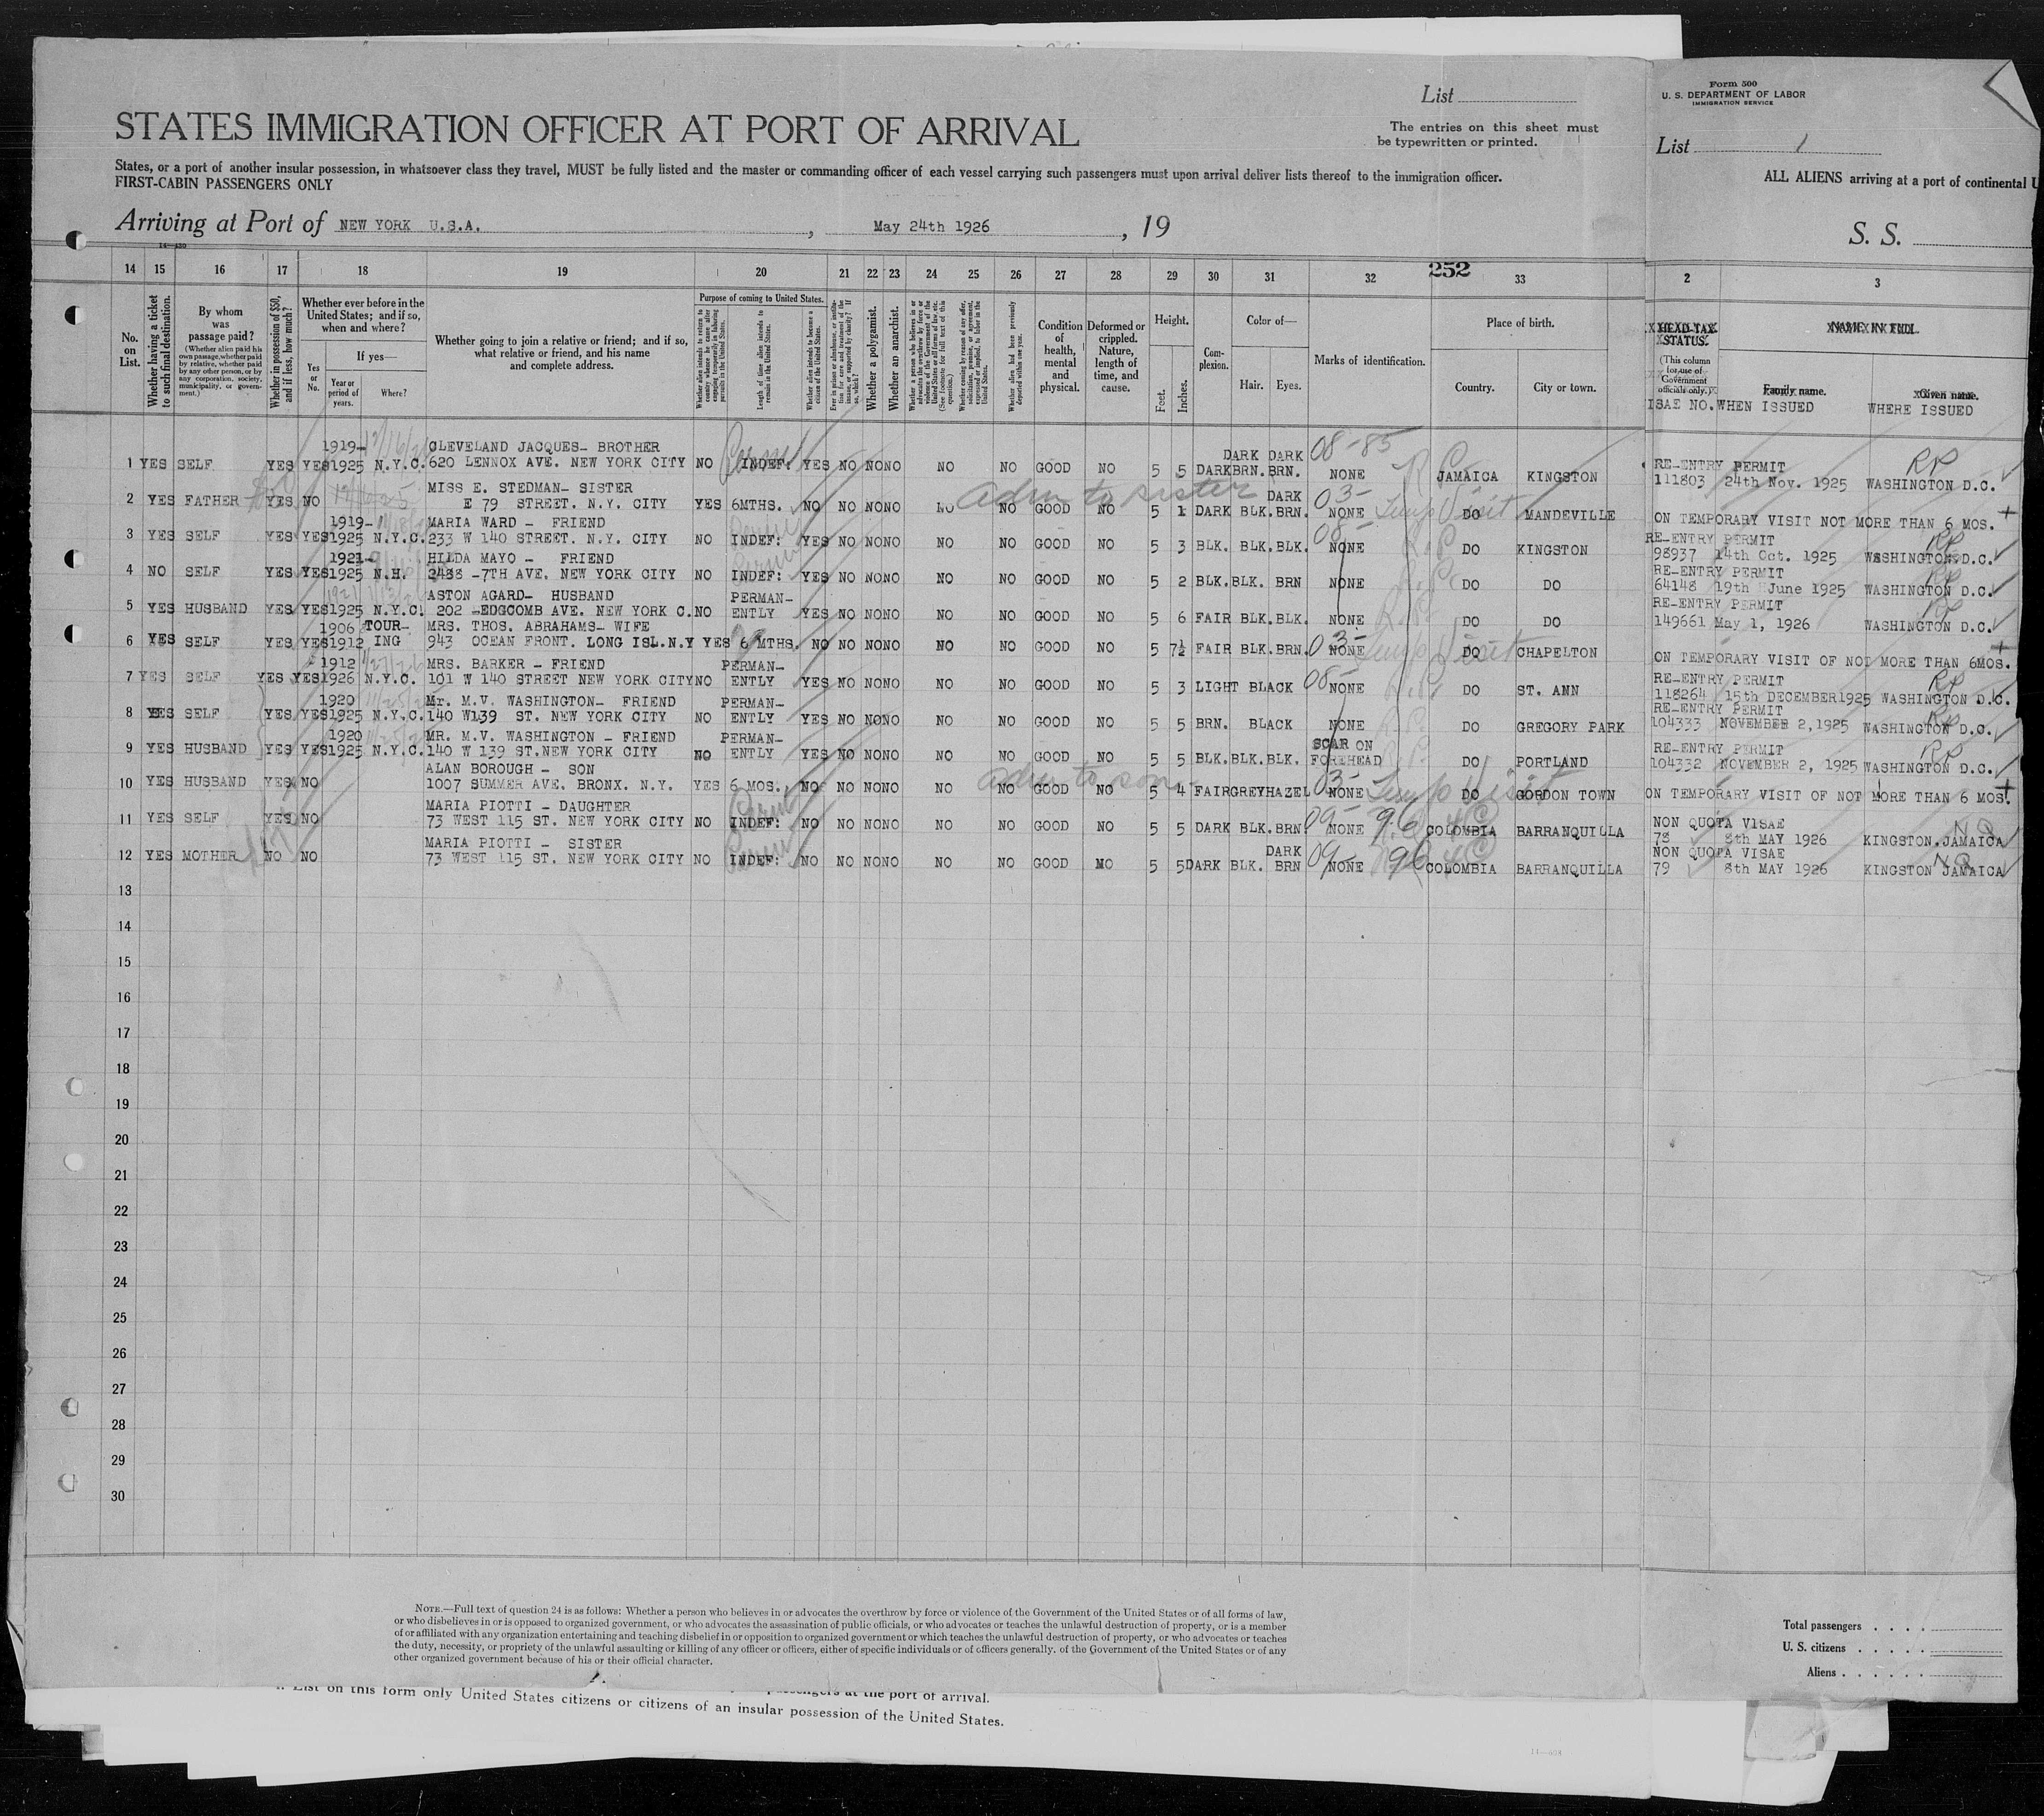 List
STATES IMMIGRATION OFFICER AT PORT OF ARRIVAL
The entries on this sheet must
be typewritten or printed.
States, or a port of another insular possession, in whatsoever class they travel, MUST be fully listed and the master or commanding officer of each vessel carrying such passengers must upon arrival deliver lists thereof to the immigration officer.
FIRST-CABIN PASSENGERS ONLY
Arriving at Port of NEW YORK U.S.A. , May 24th 1926 , 19
Form 500
U. S. DEPARTMENT OF LABOR
IMMIGRATION SERVICE
List 1
ALL ALIENS arriving at a port of continental U
S. S.
14 15 16 17 18 19 20 21 22 23 24 25 26 27 28 29 30 31 32 252 33 2 3
No. on List.
Whether having a ticket to such final destination.
By whom was passage paid?
(Whether alien paid his own passage, whether paid by relative, whether paid by any other person, or by any corporation, society, municipality, or government.)
Whether in possession of $50, and if less, how much?
Whether ever before in the United States; and if so, when and where?
Yes or No.
If yes—
Year or period of years.
Where?
Whether going to join a relative or friend; and if so, what relative or friend, and his name and complete address.
Purpose of coming to United States.
Length of time alien intends to remain in the United States.
Whether alien intends to become a citizen of the United States.
Whether a polygamist.
Whether an anarchist.
Whether alien had been previously deported within one year.
Condition of health, mental and physical.
Deformed or crippled. Nature, length of time, and cause.
Height.
Feet. Inches.
Complexion.
Color of—
Hair. Eyes.
Marks of identification.
Place of birth.
Country. City or town.
HEAD-TAX STATUS.
(This column for use of Government officials only.)
NAME IN FULL
Family name. Given name.
ISAE NO. WHEN ISSUED WHERE ISSUED
1919- CLEVELAND JACQUES- BROTHER DARK DARK 08-85
1 YES SELF YES YES 1925 N.Y.C. 620 LENNOX AVE. NEW YORK CITY NO INDEF: YES NO NO NO NO NO GOOD NO 5 5 DARK BRN. BRN. NONE JAMAICA KINGSTON RE-ENTRY PERMIT RP
111803 24th Nov. 1925 WASHINGTON D.C.
MISS E. STEDMAN- SISTER adm to sister DARK 03- Temp Visit
2 YES FATHER YES NO E 79 STREET. N.Y. CITY YES 6MTHS. NO NO NO NO NO NO GOOD NO 5 1 DARK BLK. BRN. NONE DO MANDEVILLE ON TEMPORARY VISIT NOT MORE THAN 6 MOS.
1919- MARIA WARD - FRIEND 08-
3 YES SELF YES YES 1925 N.Y.C. 233 W 140 STREET. N.Y. CITY NO INDEF: YES NO NO NO NO NO GOOD NO 5 3 BLK. BLK. BLK. NONE DO KINGSTON RE-ENTRY PERMIT RP
98937 14th Oct. 1925 WASHINGTON D.C.
1921- HILDA MAYO - FRIEND
4 NO SELF YES YES 1925 N.H. 2438 -7TH AVE. NEW YORK CITY NO INDEF: YES NO NO NO NO NO GOOD NO 5 2 BLK. BLK. BRN NONE DO DO RE-ENTRY PERMIT RP
64148 19th June 1925 WASHINGTON D.C.
ASTON AGARD- HUSBAND PERMAN-
5 YES HUSBAND YES YES 1925 N.Y.C. 202 -EDGCOMB AVE. NEW YORK C. NO ENTLY YES NO NO NO NO NO GOOD NO 5 6 FAIR BLK. BLK. NONE DO DO RE-ENTRY PERMIT RP
149661 May 1, 1926 WASHINGTON D.C.
1906 TOUR- MRS. THOS. ABRAHAMS- WIFE 03- Temp Visit
6 YES SELF YES YES 1912 ING 943 OCEAN FRONT. LONG ISL.N.Y YES 6 MTHS. NO NO NO NO NO NO GOOD NO 5 7½ FAIR BLK. BRN. NONE DO CHAPELTON ON TEMPORARY VISIT OF NOT MORE THAN 6MOS.
1912 MRS. BARKER - FRIEND PERMAN- 08-
7 YES SELF YES YES 1926 N.Y.C. 101 W 140 STREET NEW YORK CITY NO ENTLY YES NO NO NO NO NO GOOD NO 5 3 LIGHT BLACK NONE DO ST. ANN RE-ENTRY PERMIT RP
118264 15th DECEMBER 1925 WASHINGTON D.C.
1920 Mr. M.V. WASHINGTON- FRIEND PERMAN-
8 YES SELF YES YES 1925 N.Y.C. 140 W139 ST. NEW YORK CITY NO ENTLY YES NO NO NO NO NO GOOD NO 5 5 BRN. BLACK NONE DO GREGORY PARK RE-ENTRY PERMIT RP
104333 NOVEMBER 2, 1925 WASHINGTON D.C.
1920 MR. M.V. WASHINGTON - FRIEND PERMAN- SCAR ON
9 YES HUSBAND YES YES 1925 N.Y.C. 140 W 139 ST. NEW YORK CITY NO ENTLY YES NO NO NO NO NO GOOD NO 5 5 BLK. BLK. BLK. FOREHEAD DO PORTLAND RE-ENTRY PERMIT RP
104332 NOVEMBER 2, 1925 WASHINGTON D.C.
ALAN BOROUGH - SON adm to son 03- Temp Visit
10 YES HUSBAND YES NO 1007 SUMMER AVE. BRONX. N.Y. YES 6 MOS. NO NO NO NO NO NO GOOD NO 5 4 FAIR GREY HAZEL NONE DO GORDON TOWN ON TEMPORARY VISIT OF NOT MORE THAN 6 MOS.
MARIA PIOTTI - DAUGHTER 09- 96
11 YES SELF YES NO 73 WEST 115 ST. NEW YORK CITY NO INDEF: NO NO NO NO NO NO GOOD NO 5 5 DARK BLK. BRN. NONE COLOMBIA BARRANQUILLA NON QUOTA VISAE
78 8th MAY 1926 KINGSTON.JAMAICA
MARIA PIOTTI - SISTER DARK 09- 96
12 YES MOTHER NO NO 73 WEST 115 ST. NEW YORK CITY NO INDEF: NO NO NO NO NO NO GOOD NO 5 5 DARK BLK. BRN NONE COLOMBIA BARRANQUILLA NON QUOTA VISAE
79 8th MAY 1926 KINGSTON JAMAICA
13
14
15
16
17
18
19
20
21
22
23
24
25
26
27
28
29
30
NOTE.—Full text of question 24 is as follows: Whether a person who believes in or advocates the overthrow by force or violence of the Government of the United States or of all forms of law,
or who disbelieves in or is opposed to organized government, or who advocates the assassination of public officials, or who advocates or teaches the unlawful destruction of property, or is a member
of or affiliated with any organization entertaining and teaching disbelief in or opposition to organized government or which teaches the unlawful destruction of property, or who advocates or teaches
the duty, necessity, or propriety of the unlawful assaulting or killing of any officer or officers, either of specific individuals or of officers generally. of the Government of the United States or of any
other organized government because of his or their official character.
Total passengers
U. S. citizens
Aliens
passengers at the port of arrival.
List on this form only United States citizens or citizens of an insular possession of the United States.